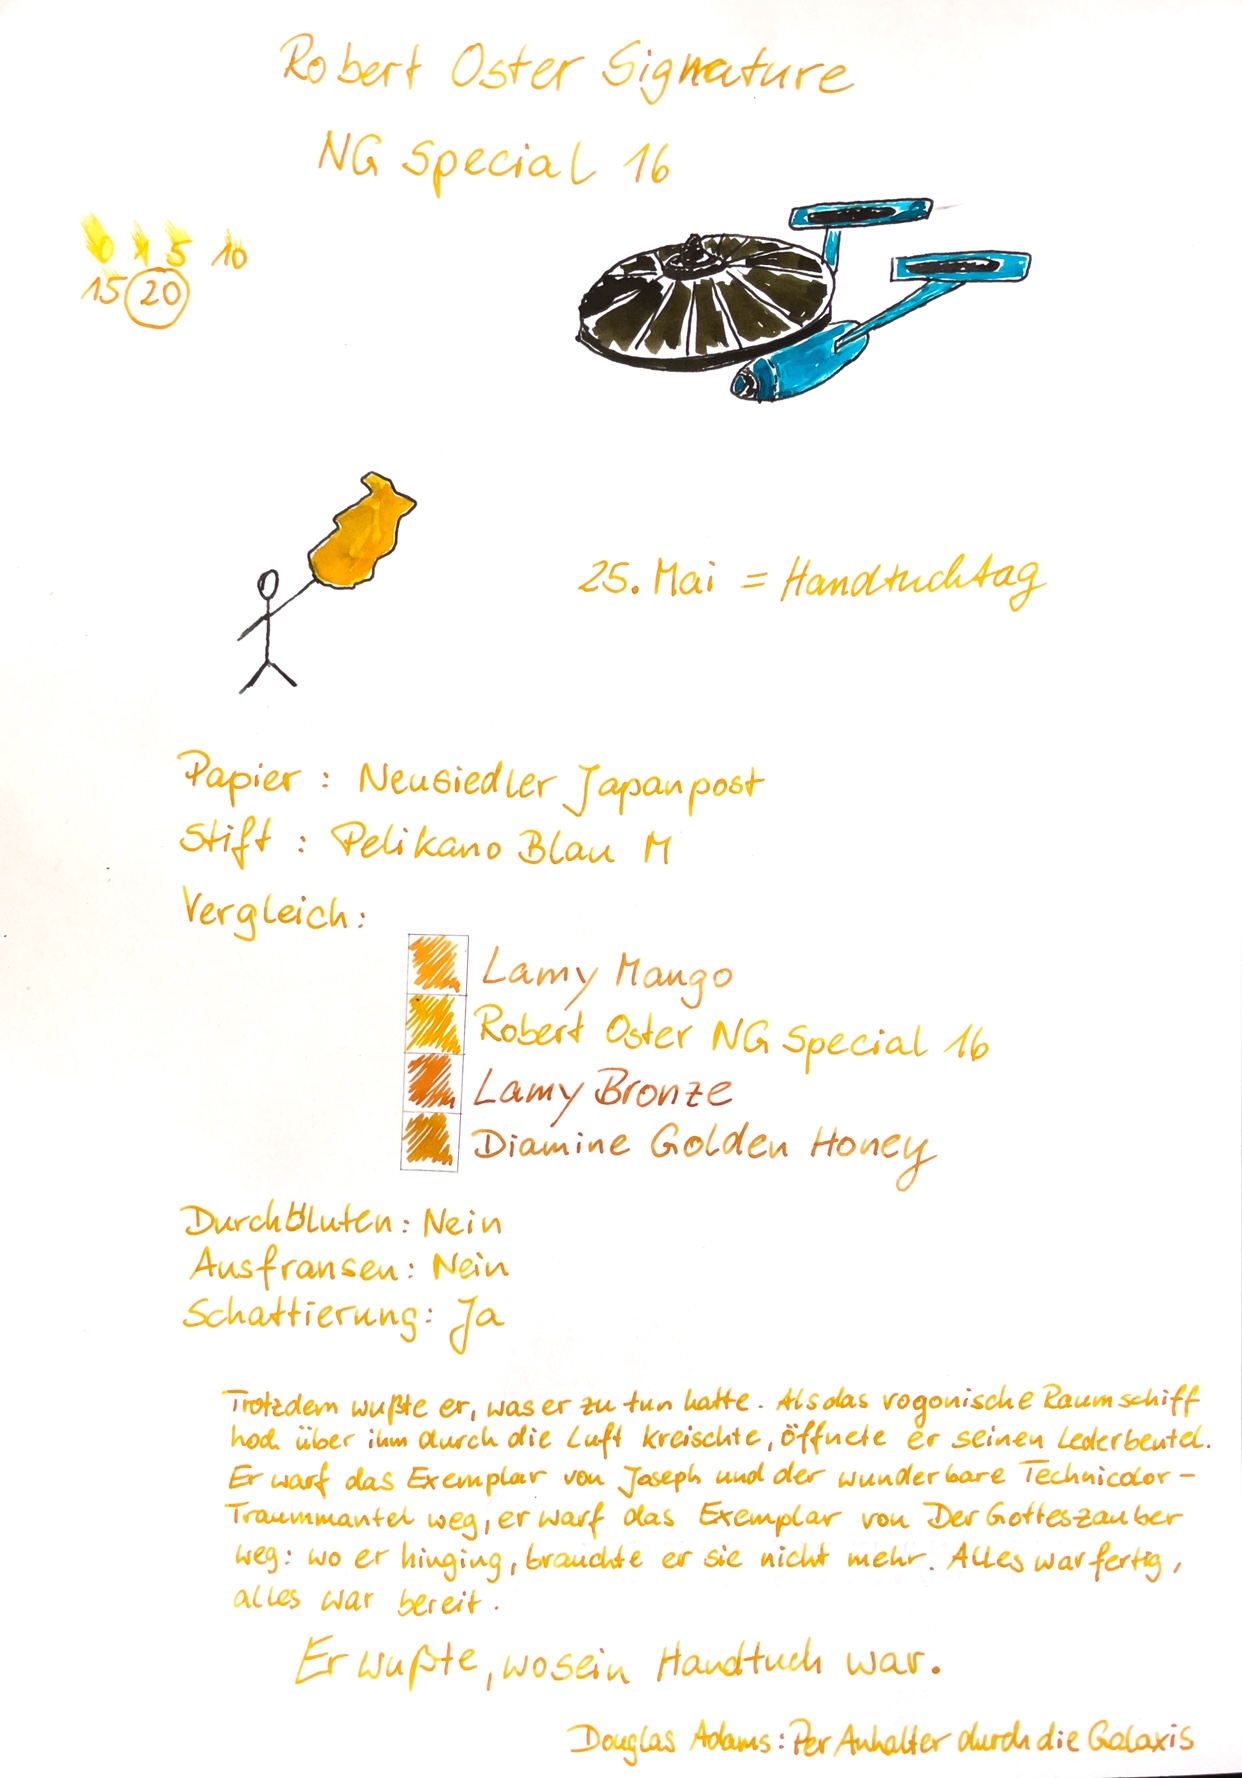 Robert Oster Signature
NG Special 16
0 1 5 10
15 20
25. Mai = Handtuchtag
Papier : Neusiedler Japanpost
Stift : Pelikano Blau M
Vergleich:
Lamy Mango
Robert Oster NG Special 16
Lamy Bronze
Diamine Golden Honey
Durchbluten: Nein
Ausfransen: Nein
Schattierung: Ja
Trotzdem wußte er, was er zu tun hatte. Als das vogonische Raumschiff
hoch über ihm durch die Luft kreischte, öffnete er seinen Lederbeutel.
Er warf das Exemplar von Joseph und der wunderbare Technicolor-
Traummantel weg, er warf das Exemplar von Der Gotteszauber
weg: wo er hinging, brauchte er sie nicht mehr. Alles war fertig,
alles war bereit.
Er wußte, wo sein Handtuch war.
Douglas Adams: Per Anhalter durch die Galaxis